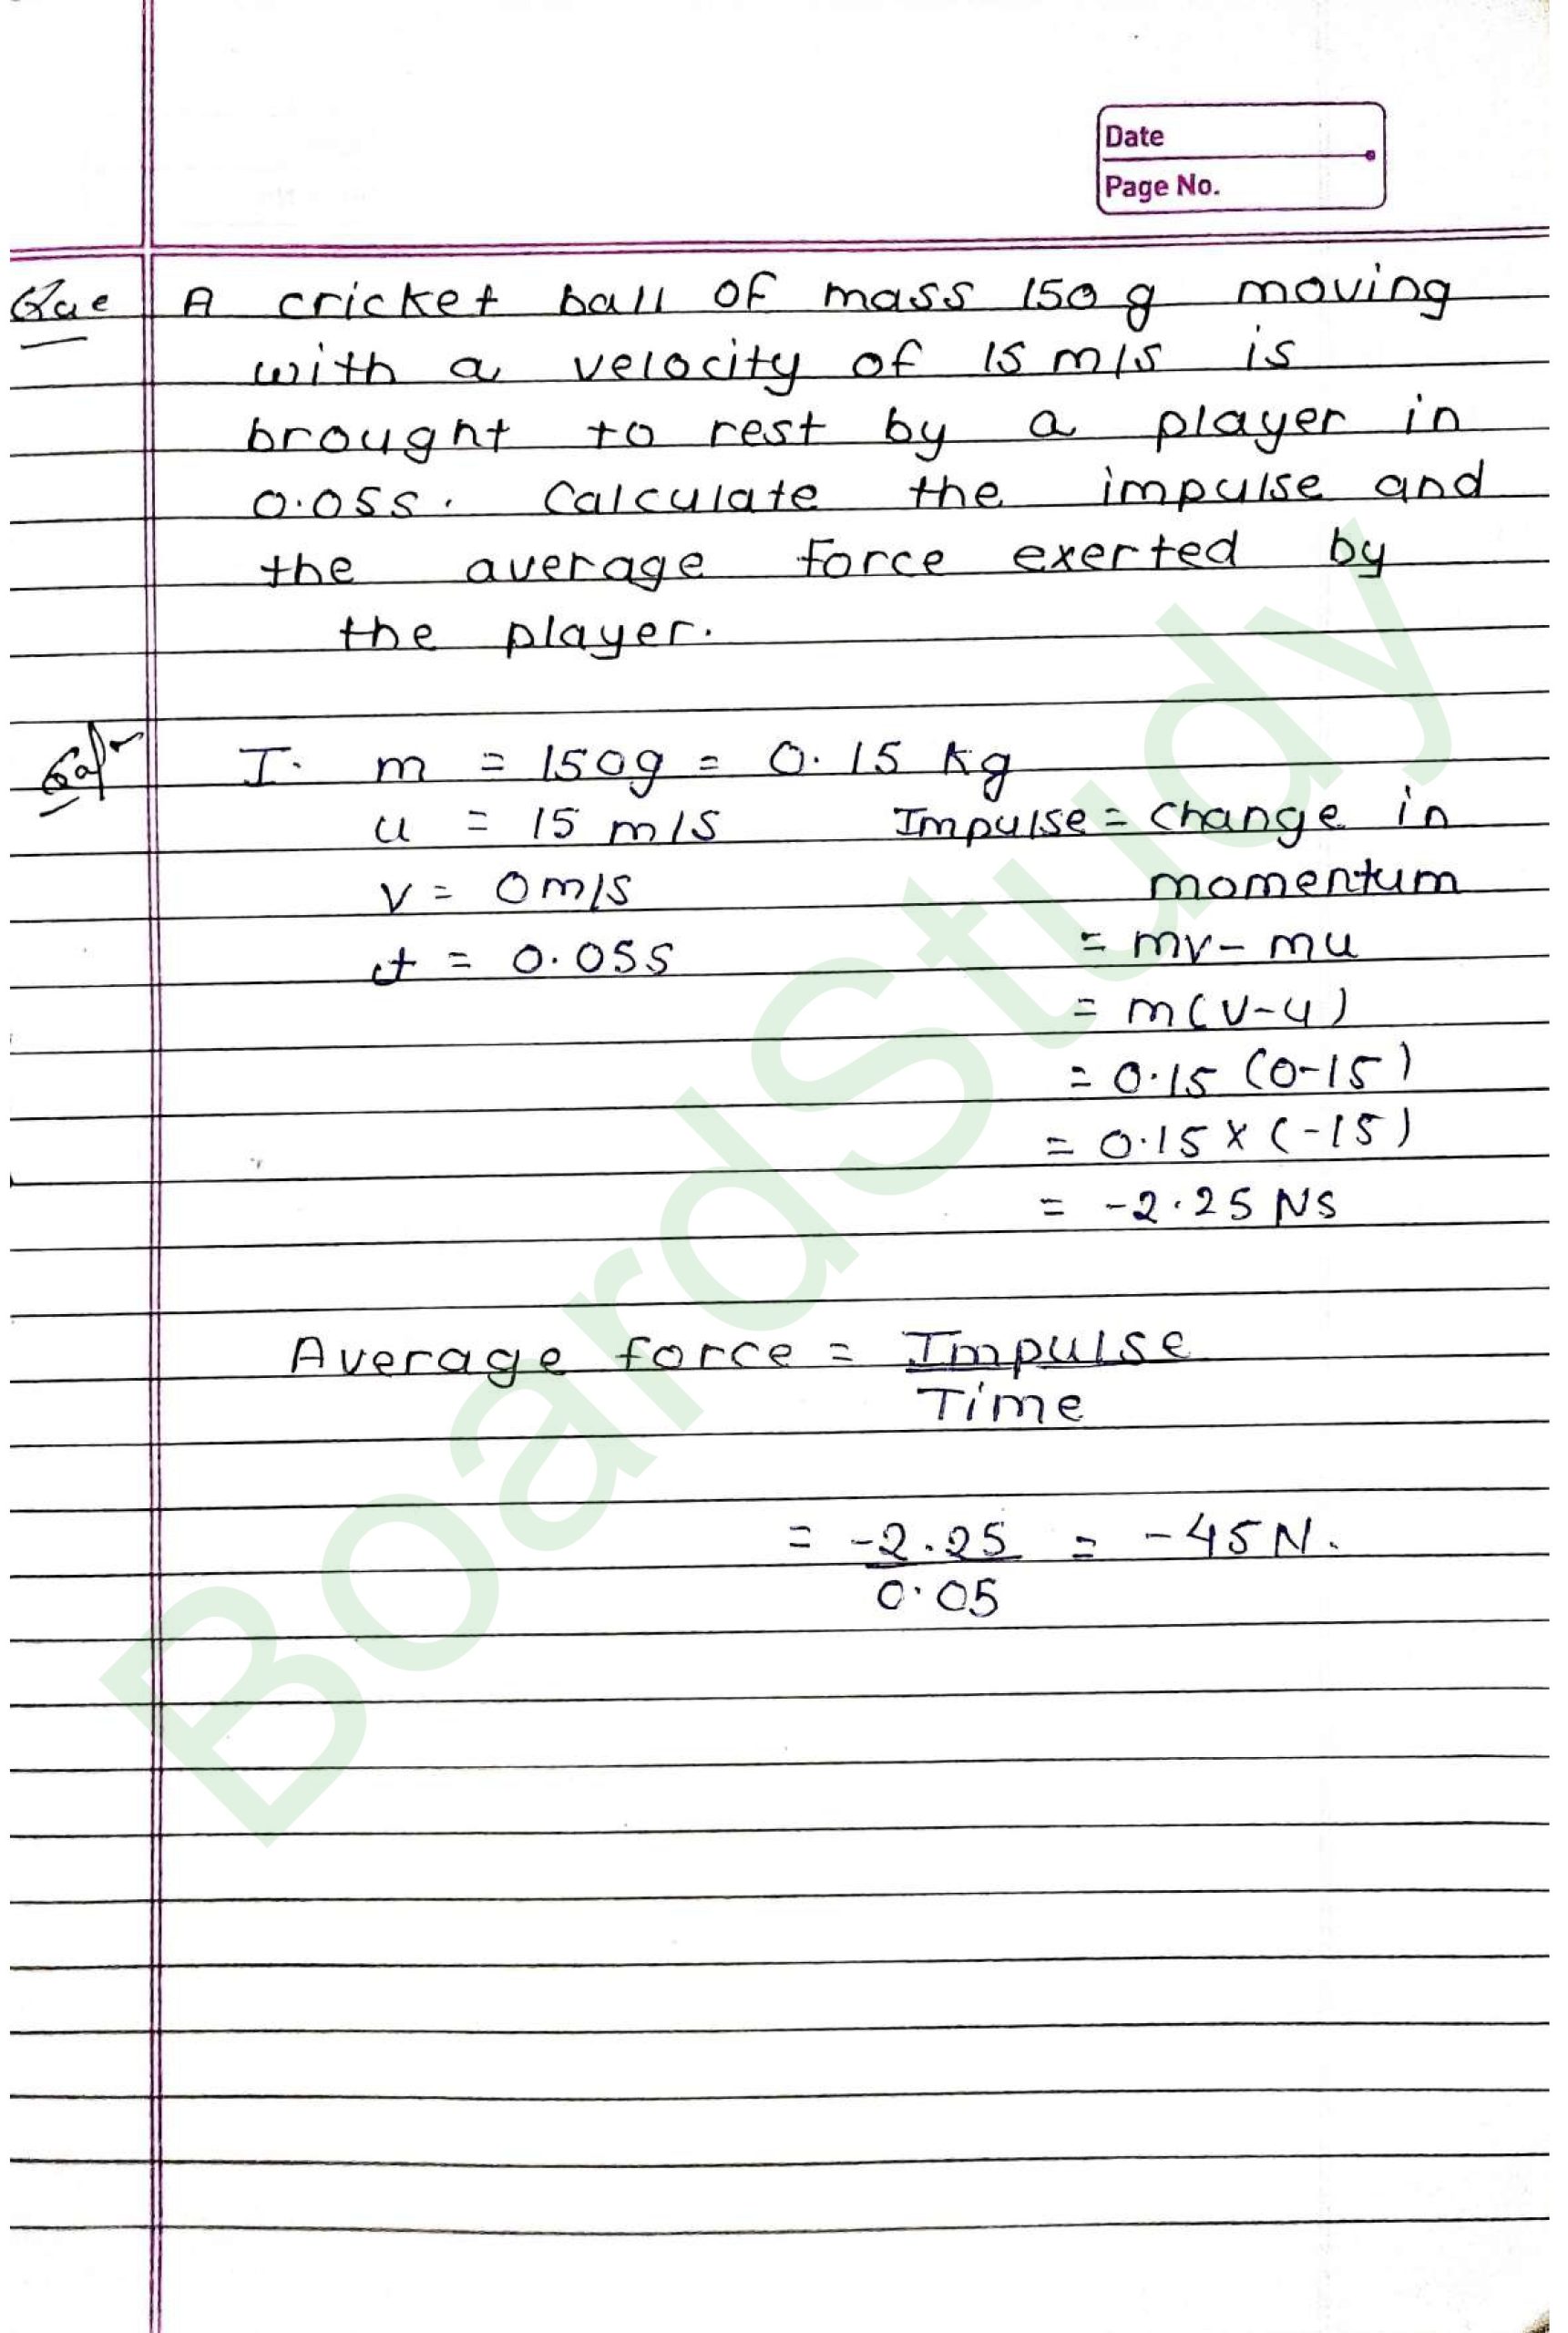 Date
Page No.
Que A cricket ball of mass 150 g moving
with a velocity of 15 m/s is
brought to rest by a player in
0.05s. Calculate the impulse and
the average force exerted by
the player.
Soln I. m = 150g = 0.15 kg
u = 15 m/s Impulse = change in
v = 0 m/s momentum
t = 0.05s = mv - mu
= m(v-u)
= 0.15 (0-15)
= 0.15 x (-15)
= -2.25 NS
Average force = Impulse
Time
= -2.25 = -45 N.
0.05
BoardStudy